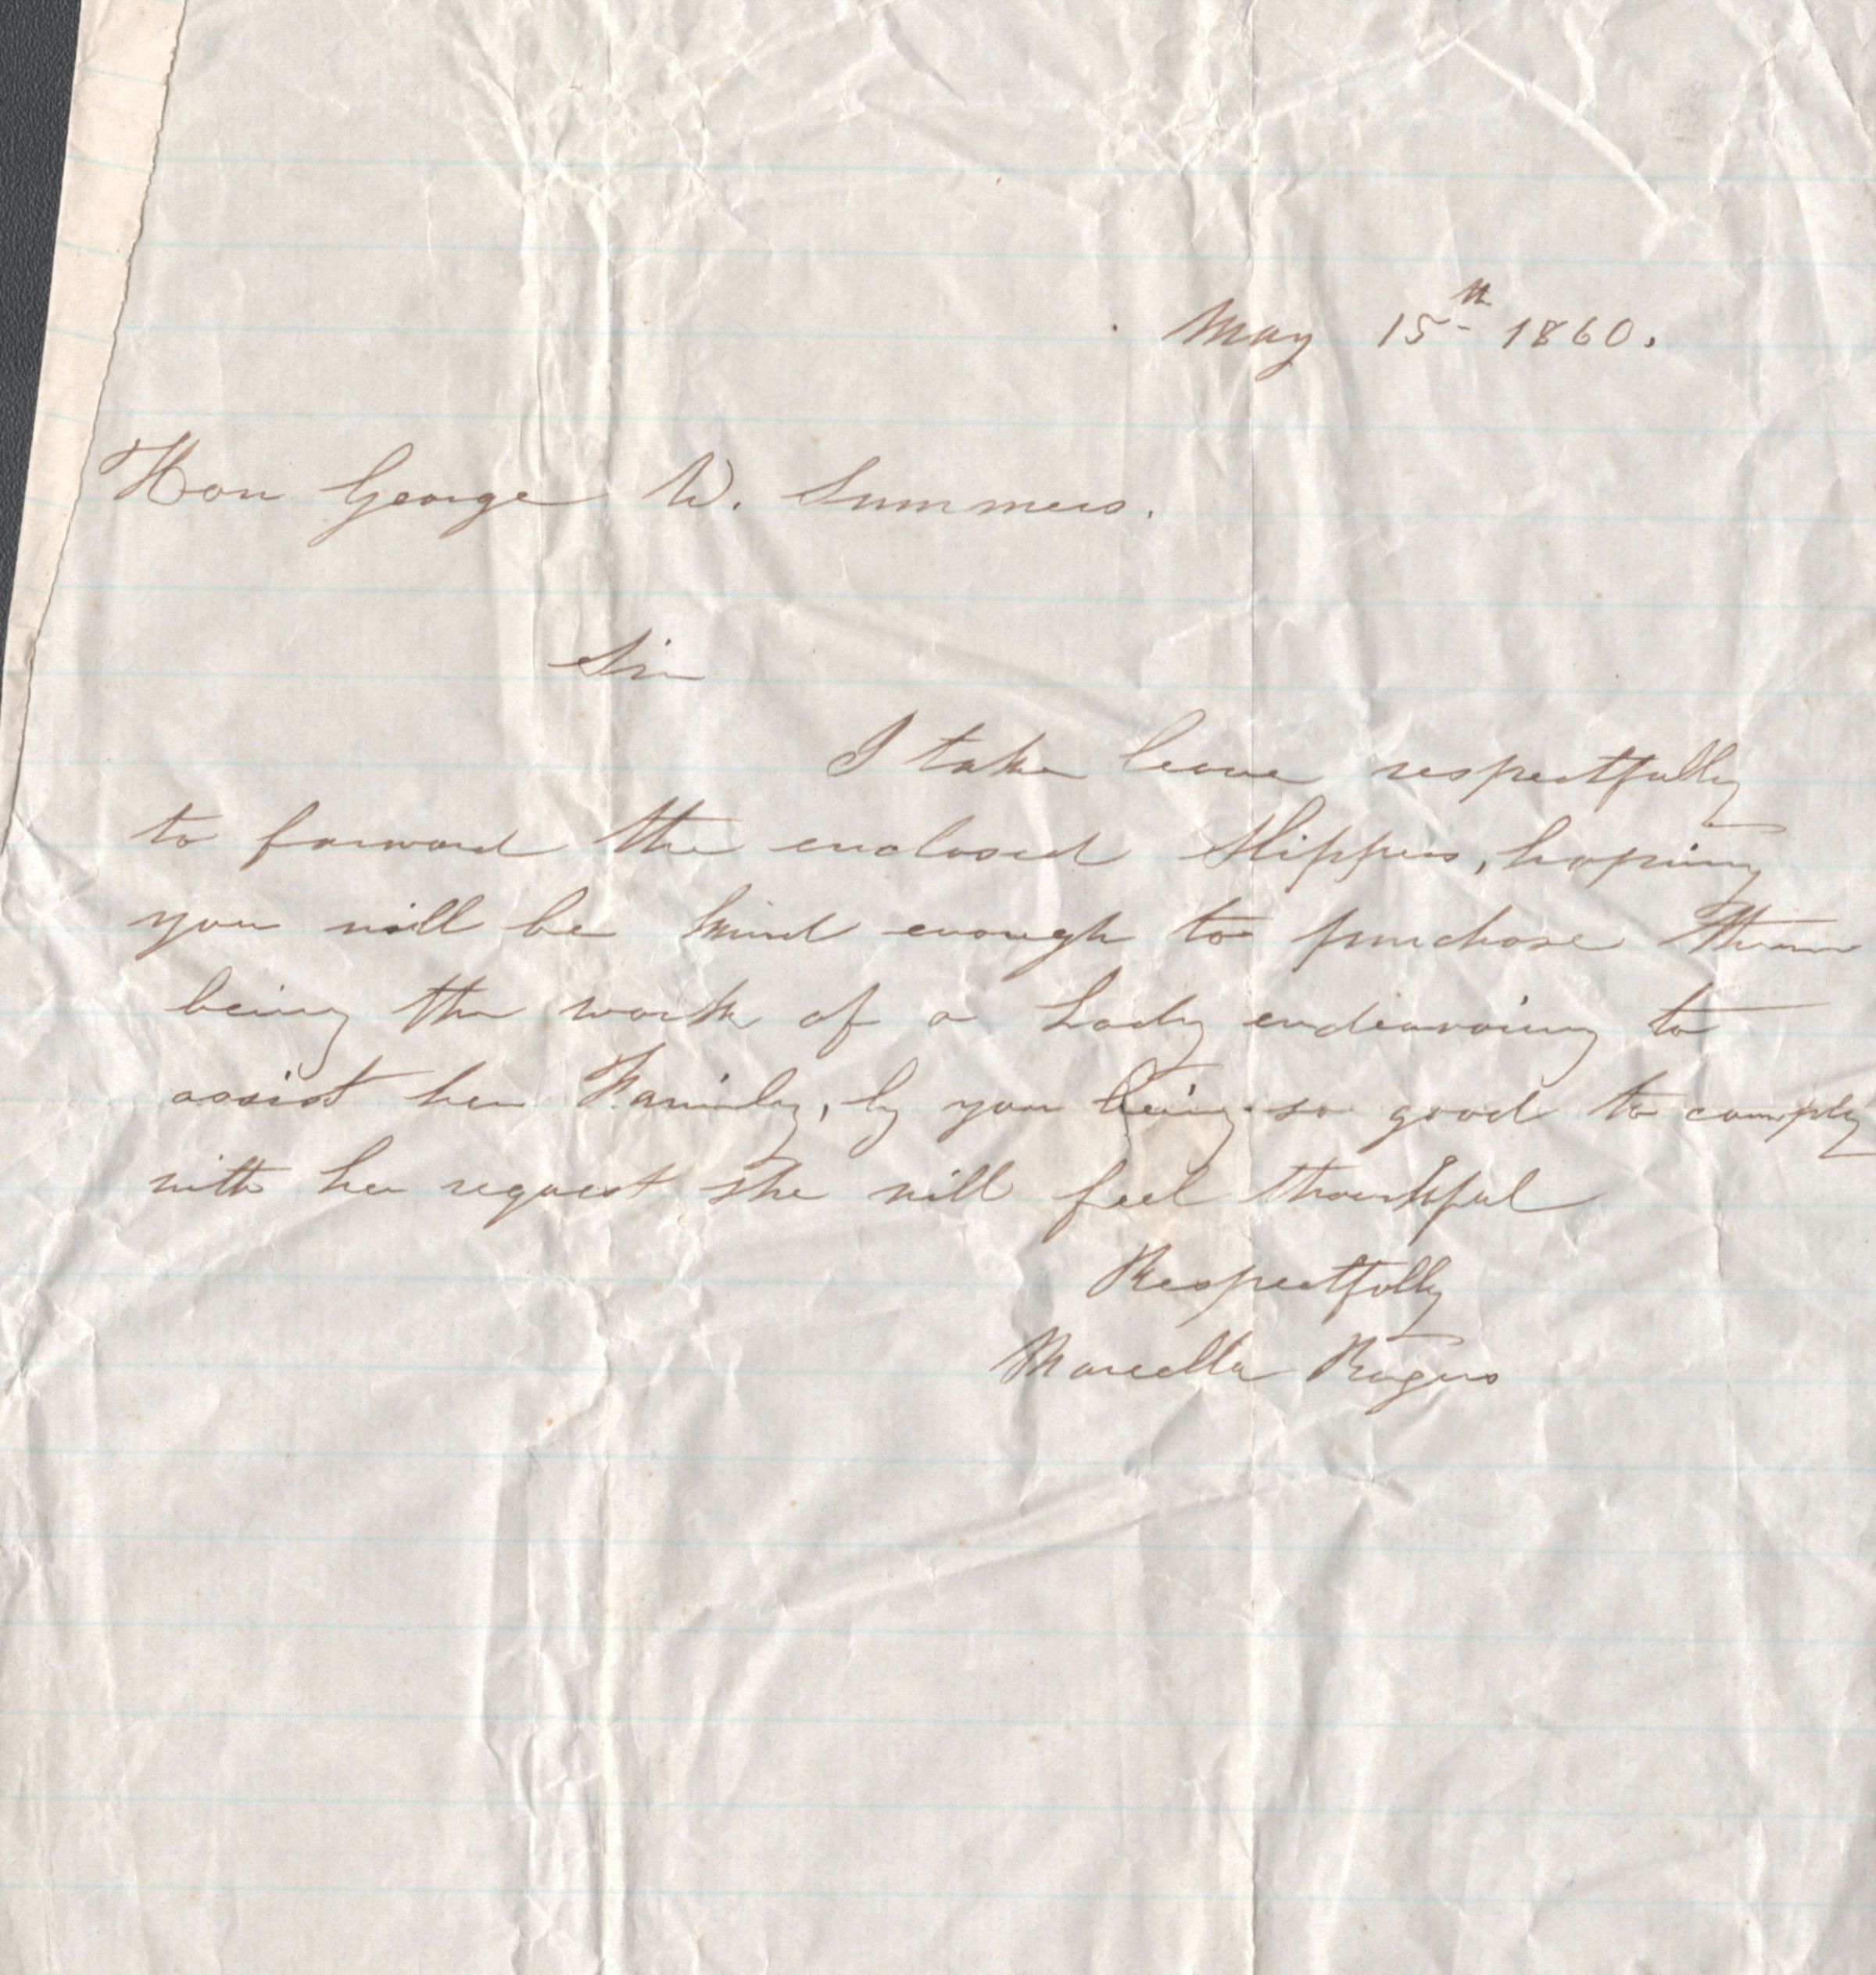 May 15th 1860.
Hon George W. Summers.
Sir
I take leave respectfully
to forward the enclosed Slippers, hoping
you will be kind enough to purchase them
being the work of a Lady endeavoring to
assist her Family, by you being so good to comply
with her request she will feel thankful
Respectfully
Marcella Rogers